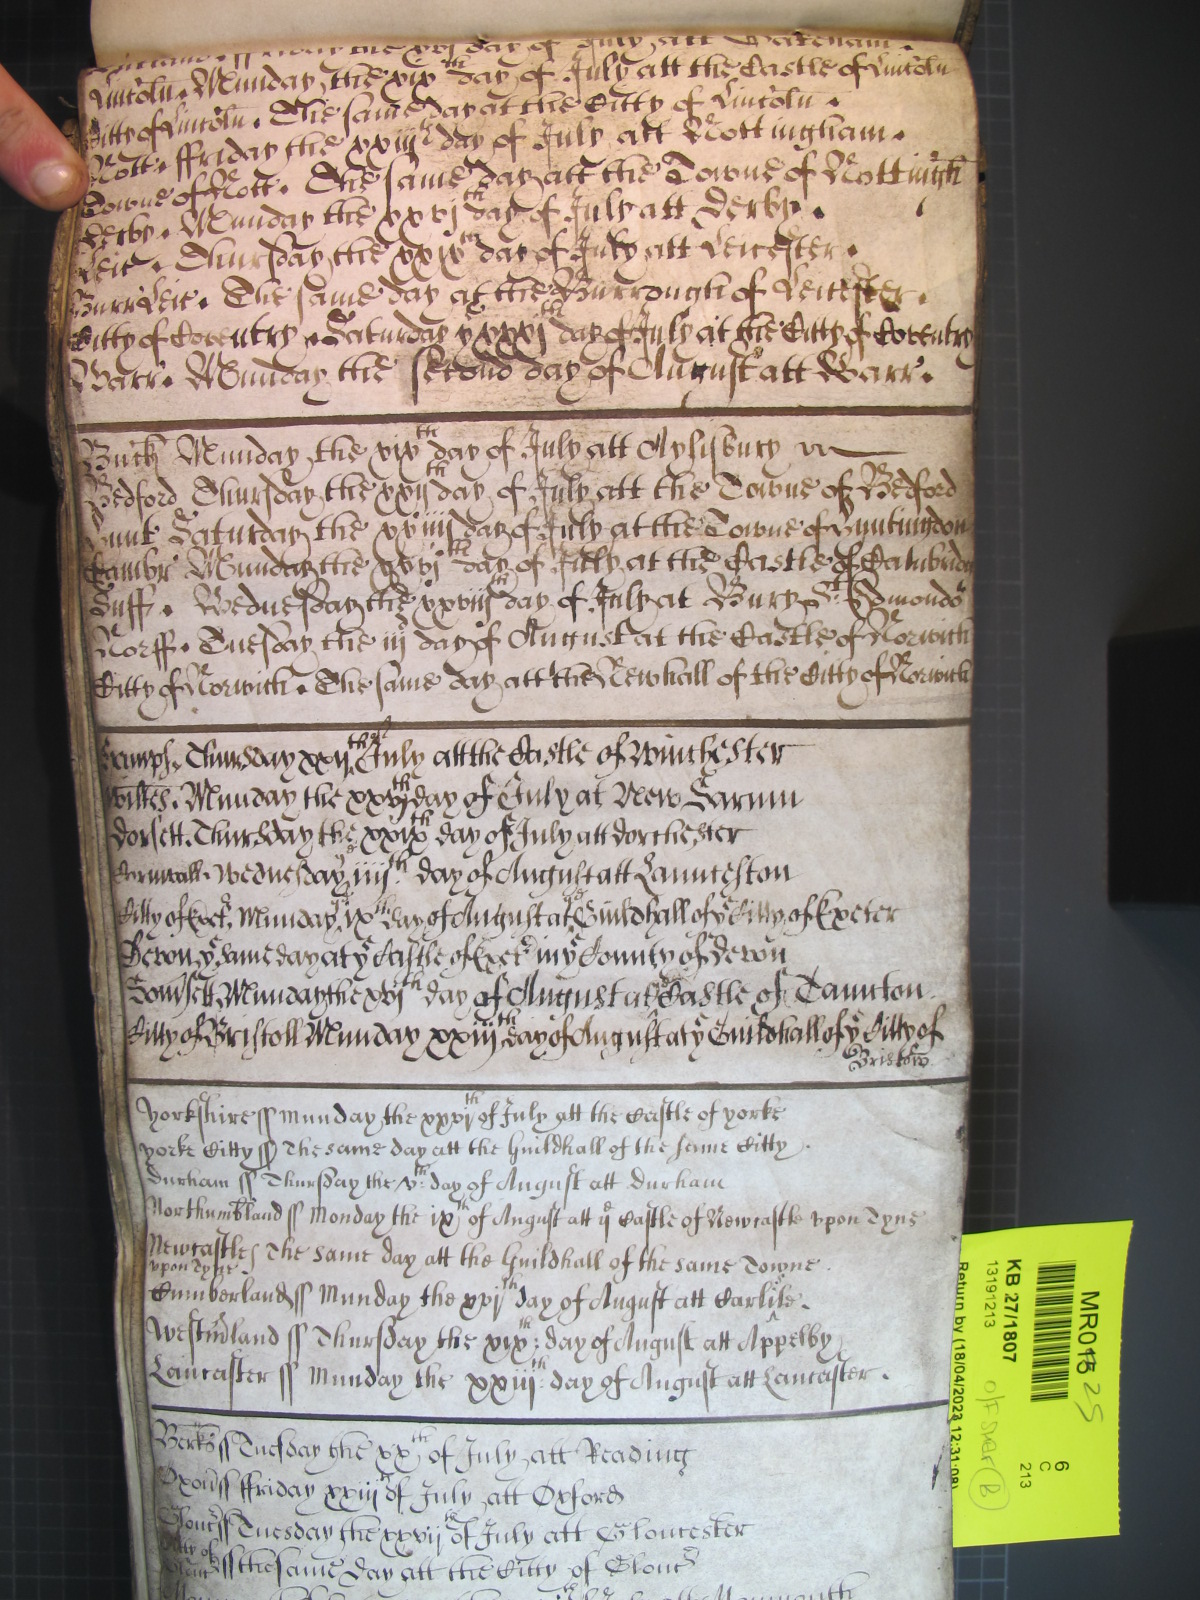 the xvj day of July att
Lincoln. Munday the xix th day of July att the Castle of Lincoln
Citty of Lincoln. The same day at the Citty of Lincoln.
Nott. ffriday the xxiij day of July att Nottingham.
Towne of Nott. The same day att the Towne of Nottingh
Derby. Munday the xxvj th day of July att Derby.
Leic. Thursday the xxix th day of July att Leicester.
Burr Leic. The same day at the Burrough of Leicester.
Citty of Coventry. Saturday y xxxj th day of July at the Citty of Coventry
Warr. Munday the second day of August att Warr.
Buck Munday the xix th day of July att Aylisbury
Bedford Thursday the xxij th day of July att the Towne of Bedford
Hunt Saturday the xxiiij day of July at the Towne of Huntingdon
Cambr Munday the xxvj th day of July at the Castle of Cambridg
Suff. Wednesday the xxviij th day of July at Bury St Edmonds
Norff. Tuesday the iij day of August at the Castle of Norwich
Citty of Norwich. The same day att the Newhall of the Citty of Norwich
Thursday xxij th of July att the Castle of Winchester
Wiltes. Munday the xxvj th day of July at New Sarum
Dorsett. Thursday the xxix th day of July att dorchester
Cornwall. Wednesday ye iiij th day of August att Launceston
Citty of Exet. Munday ye ix th day of August at ye Guildhall of ye Citty of Exeter
Devon ye same day at ye Castle of Exet in ye County of devon
Somsett Munday the xvj th day of August at ye Castle of Taunton.
Citty of Bristoll Munday xxiij th day of August at ye Guildhall of ye Citty of
Bristow
Yorkshire ss Munday the xxxj th of July att the Castle of yorke
yorke Citty ss The same day att the Guildhall of the same Citty.
Durham ss Thursday the v th day of August att durham
Northumbland ss Monday the ix th of August att ye Castle of Newcastle vpon Tyne
Newcastle The same day att the Guildhall of the same Towne.
vpon Tyne
Cumberland ss Munday the xvj th day of August att Carlile.
Westmland ss Thursday the xix th: day of August att Appelby
Lancaster ss Munday the xxiij th: day of August att Lancaster.
Berks ss Tuesday the xx th of July att Reading
Oxon ss ffriday xxiij of July att Oxford
Glouc ss Tuesday the xxvij th of July att Gloucester
Citty of
Glouc ss the same day att the Citty of Glouc
MR015 25
KB 27/1807
13191213
Return by (18/04/2023 12:31:08)
6
C
213
off sher B